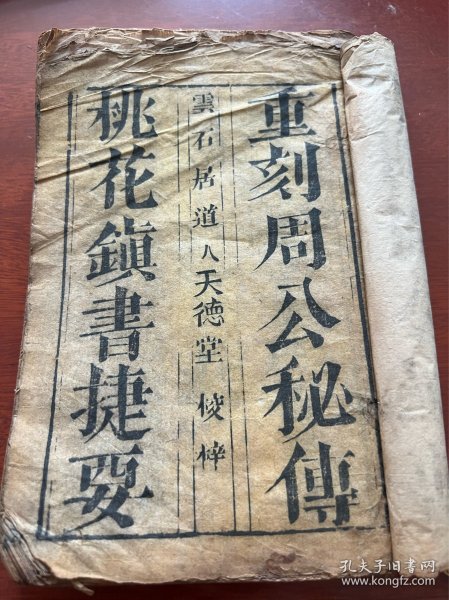 重刻周公秘傳
雲石居道人天德堂校梓
桃花鎮書捷要
孔夫子旧书网
www.kongfz.com